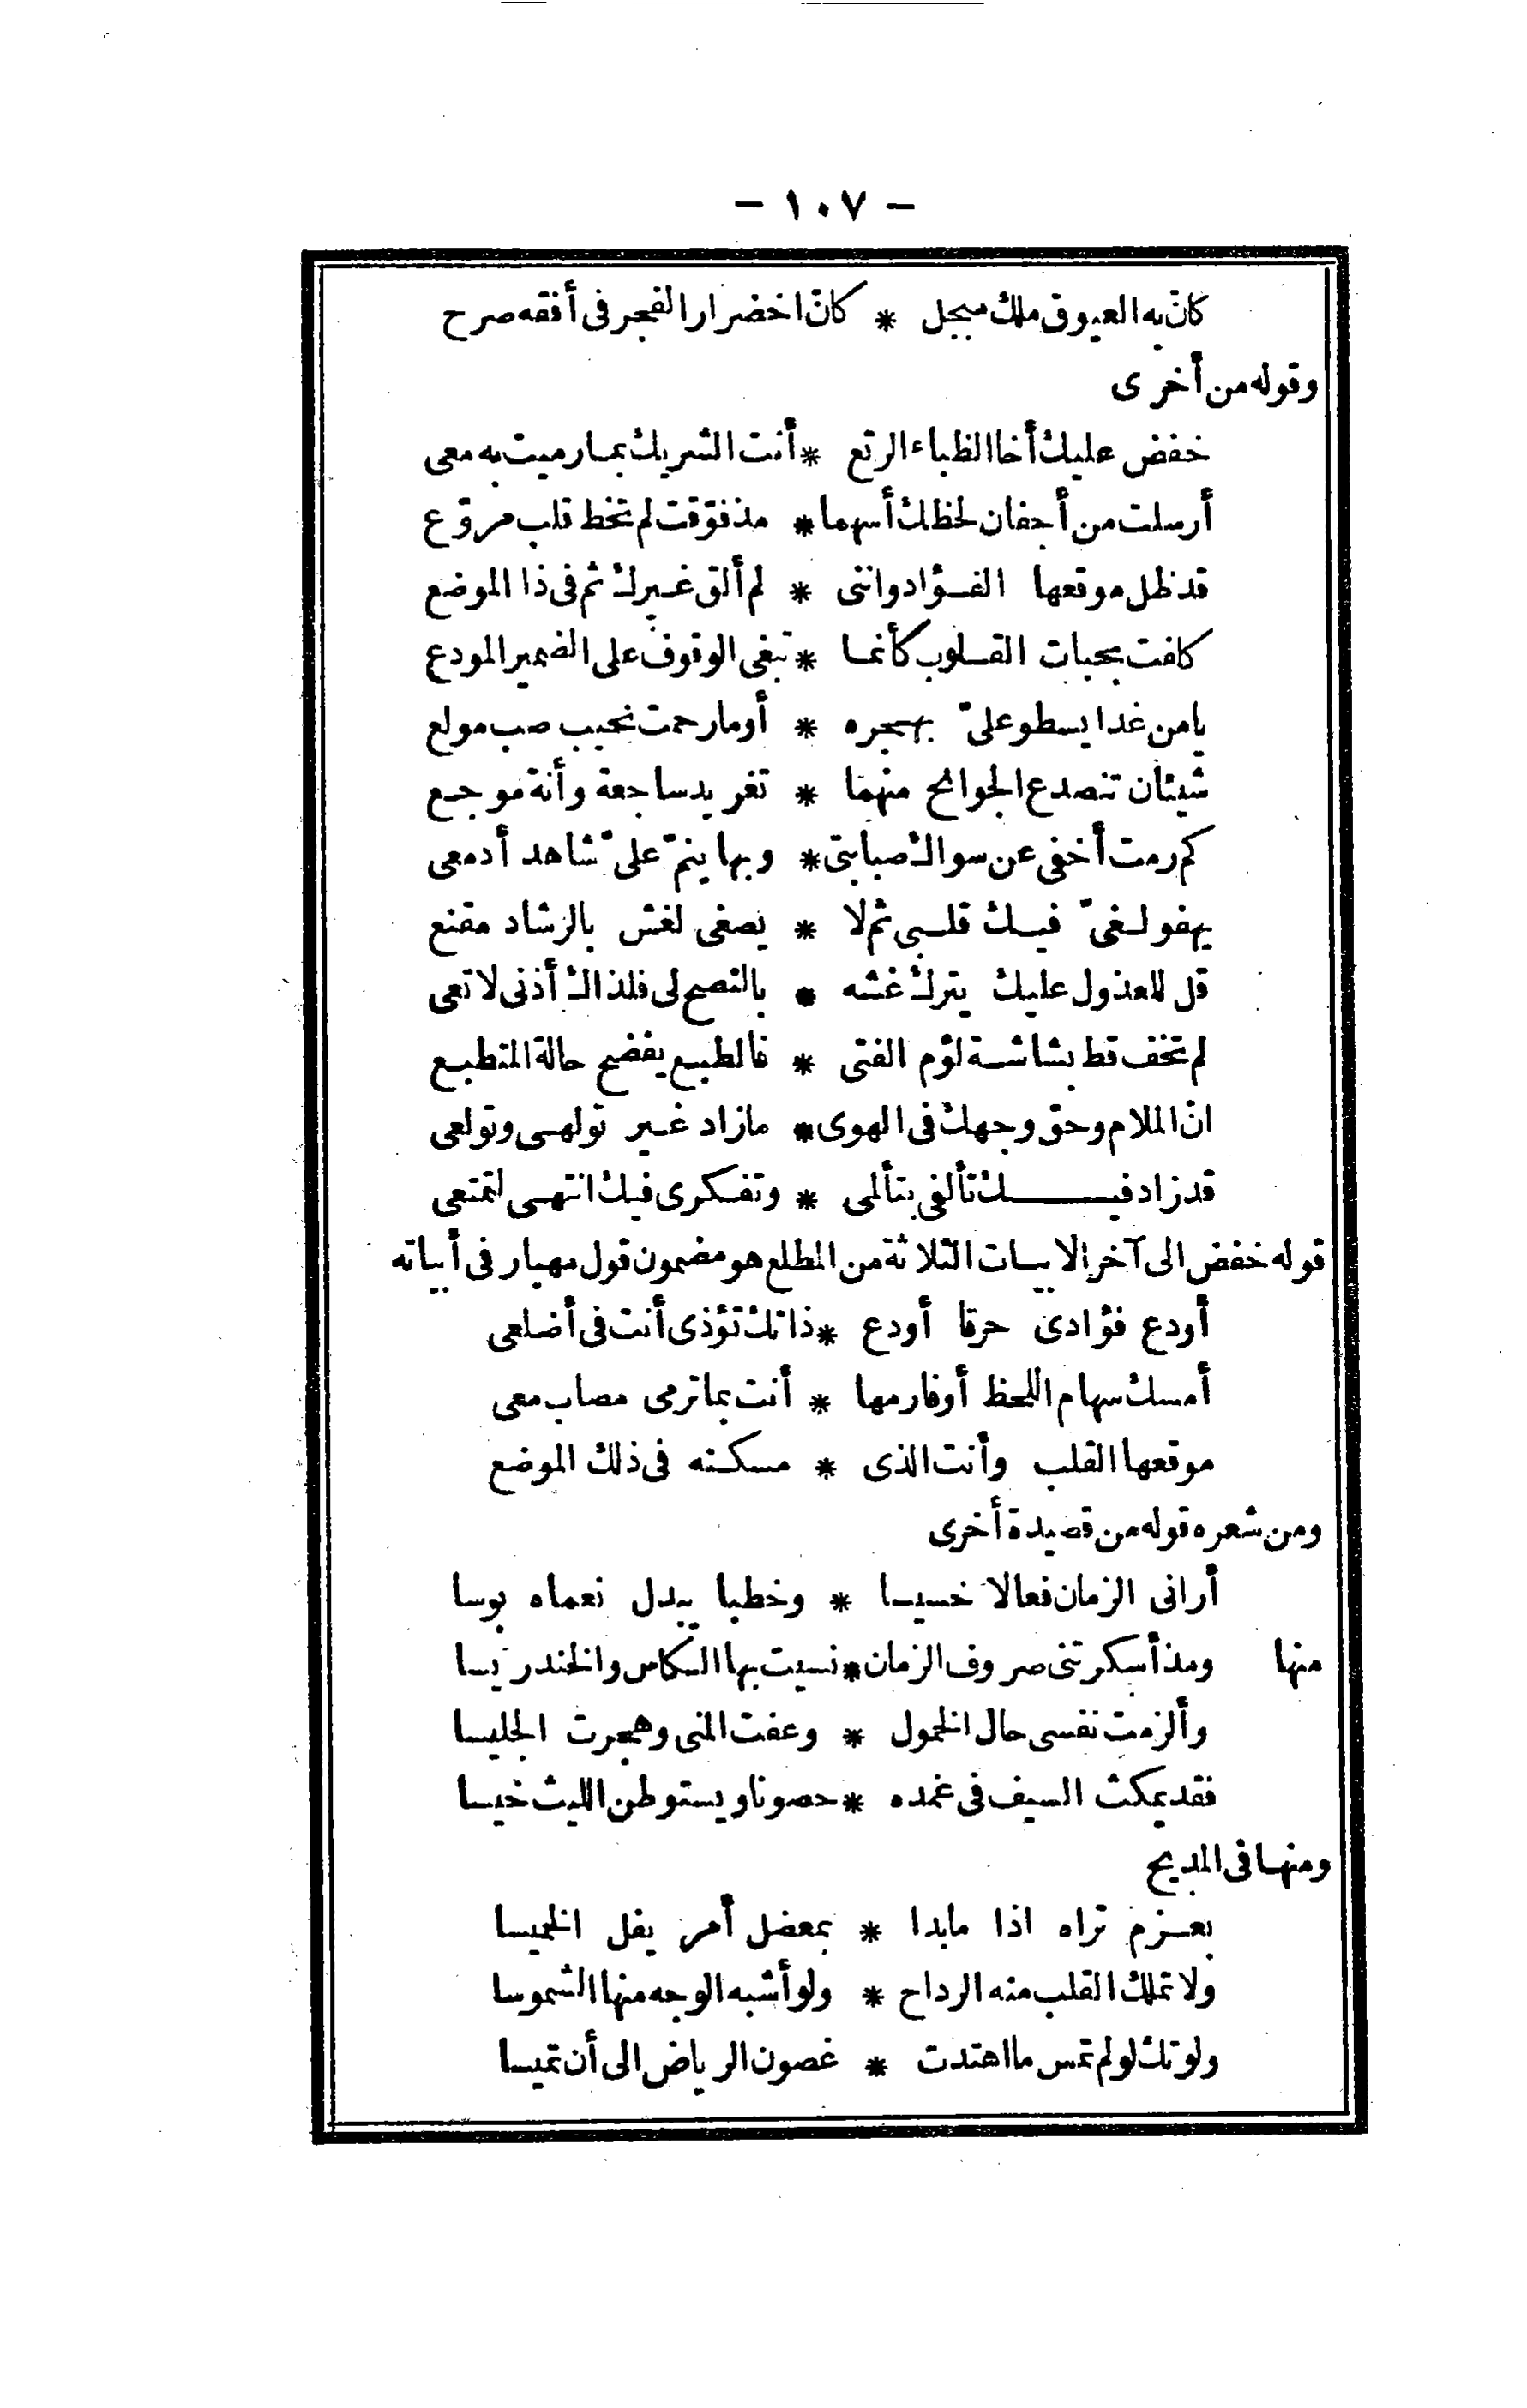 - ١٠٧ -
كانّ به العيوق ملك مبجل * كانّ اخضرار الفجر فى أفقه صرح
وقوله من أخرى
خفض عليك أخا الظباء الرتع * أنت الشريك بمارميت به معى
أرسلت من أجفان لحظك أسهما * مذفوّقت لم تخط قلب مروّع
قد ظل موقعها الفؤاد وانثى * لم ألق غيرك ثم فى ذا الموضع
كلفت بحبات القلوب كأنما * تبغى الوقوف على الضمير المودع
يا من غدا يسطو علىّ بهجره * أومارحمت نحيب صب مولع
شيئان تنصدع الجوانح منهما * تغريد ساجعة وأنة موجع
كم رمت أخفى عن سواك صبابتى * وبها ينمّ علىّ شاهد أدمعى
يهفو لغىّ فيك قلبى ثم لا * يصغى لغش بالرشاد مقنع
قل للعذول عليك يترك غشه * بالنصح لى فلذاك أذنى لا تعى
لم تخف قط بشاشة لؤم الفتى * فالطبع يفضح حالة المتطبع
انّ الملام وحق وجهك فى الهوى * مازاد غير تولهى وتولعى
قد زاد فيك تألفى بتألمى * وتفكرى فيك انتهى لتمتعى
قوله خفض الى آخر الابيات الثلاثة من المطلع هو مضمون قول مهيار فى أبياته
أودع فؤادى حرقا أودع * ذاتك تؤذى أنت فى أضلعى
أمسك سهام اللحظ أوفارمها * أنت بماترمى مصاب معى
موقعها القلب وأنت الذى * مسكنه فى ذلك الموضع
ومن شعره قوله من قصيدة أخرى
أرانى الزمان فعالا خسيسا * وخطبا يبدل نعماه بوسا
منها ومذ أسكرتنى صروف الزمان * نسيت بها الكاس والخندريسا
وألزمت نفسى حال الخمول * وعفت المنى وهجرت الجليسا
فقد يمكث السيف فى غمده * حصونا ويستوطن الليث خيسا
ومنها فى المديح
بعزم تراه اذا مابدا * بمعضل أمر يفل الخميسا
ولا تملك القلب منه الرداح * ولو أشبه الوجه منها الشموسا
ولو تك لو لم تمس ما اهتدت * غصون الرياض الى أن تميسا